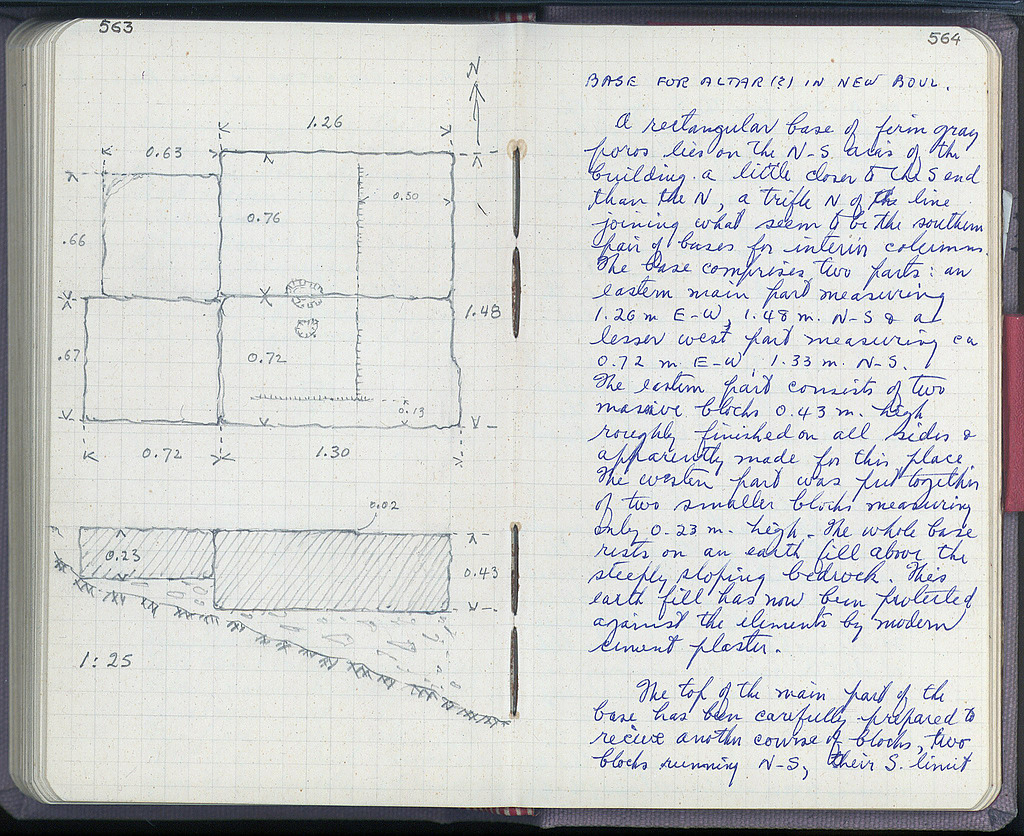 563
N
1.26
0.63
0.50
0.76
.66
1.48
.67
0.72
0.13
0.72
1.30
0.02
0.23
0.43
1:25
564
BASE FOR ALTAR (?) IN NEW BOUL.
A rectangular base of firm gray
poros lies on the N-S axis of the
building, a little closer to the S end
than the N, a trifle N of the line
joining what seem to be the southern
pair of bases for interior columns.
The base comprises two parts: an
eastern main part measuring
1.26 m E-W, 1.48 m. N-S & a
lesser west part measuring ca
0.72 m. E-W, 1.33 m. N-S.
The eastern part consists of two
massive blocks 0.43 m. high
roughly finished on all sides &
apparently made for this place.
The western part was put together
of two smaller blocks measuring
only 0.23 m. high. The whole base
rests on an earth fill above the
steeply sloping bedrock. This
earth fill has now been protected
against the elements by modern
cement plaster.
The top of the main part of the
base has been carefully prepared to
receive another course of blocks, two
blocks running N-S, their S. limit